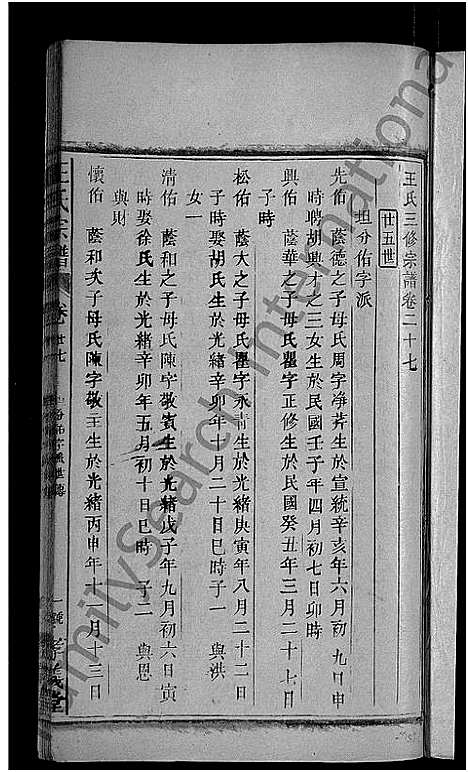 王氏三修宗譜卷二十七
廿五世
坦分佑字派
先佑 蔭德之子母氏周字淨芹生於宣統辛亥年六月初九日申
時聘胡興才之三女生於民國壬子年四月初七日卯時
興佑 蔭華之子母氏瞿字正修生於民國癸丑年三月二十七日
子時
松佑 蔭大之子母氏瞿字永清生於光緒庚寅年八月二十二日
子時娶胡氏生於光緒辛卯年十月二十日巳時子一 與洪
女一
清佑 蔭和之子母氏陳字敬賓生於光緒戊子年九月初六日寅
時娶徐氏生於光緒辛卯年五月初十日巳時 子二 與恩
與財
懷佑 蔭和次子母氏陳字敬主生於光緒丙申年十一月十三日
王氏宗譜
卷廿七
坦分佑字派世傳
堂
FamilySearch International